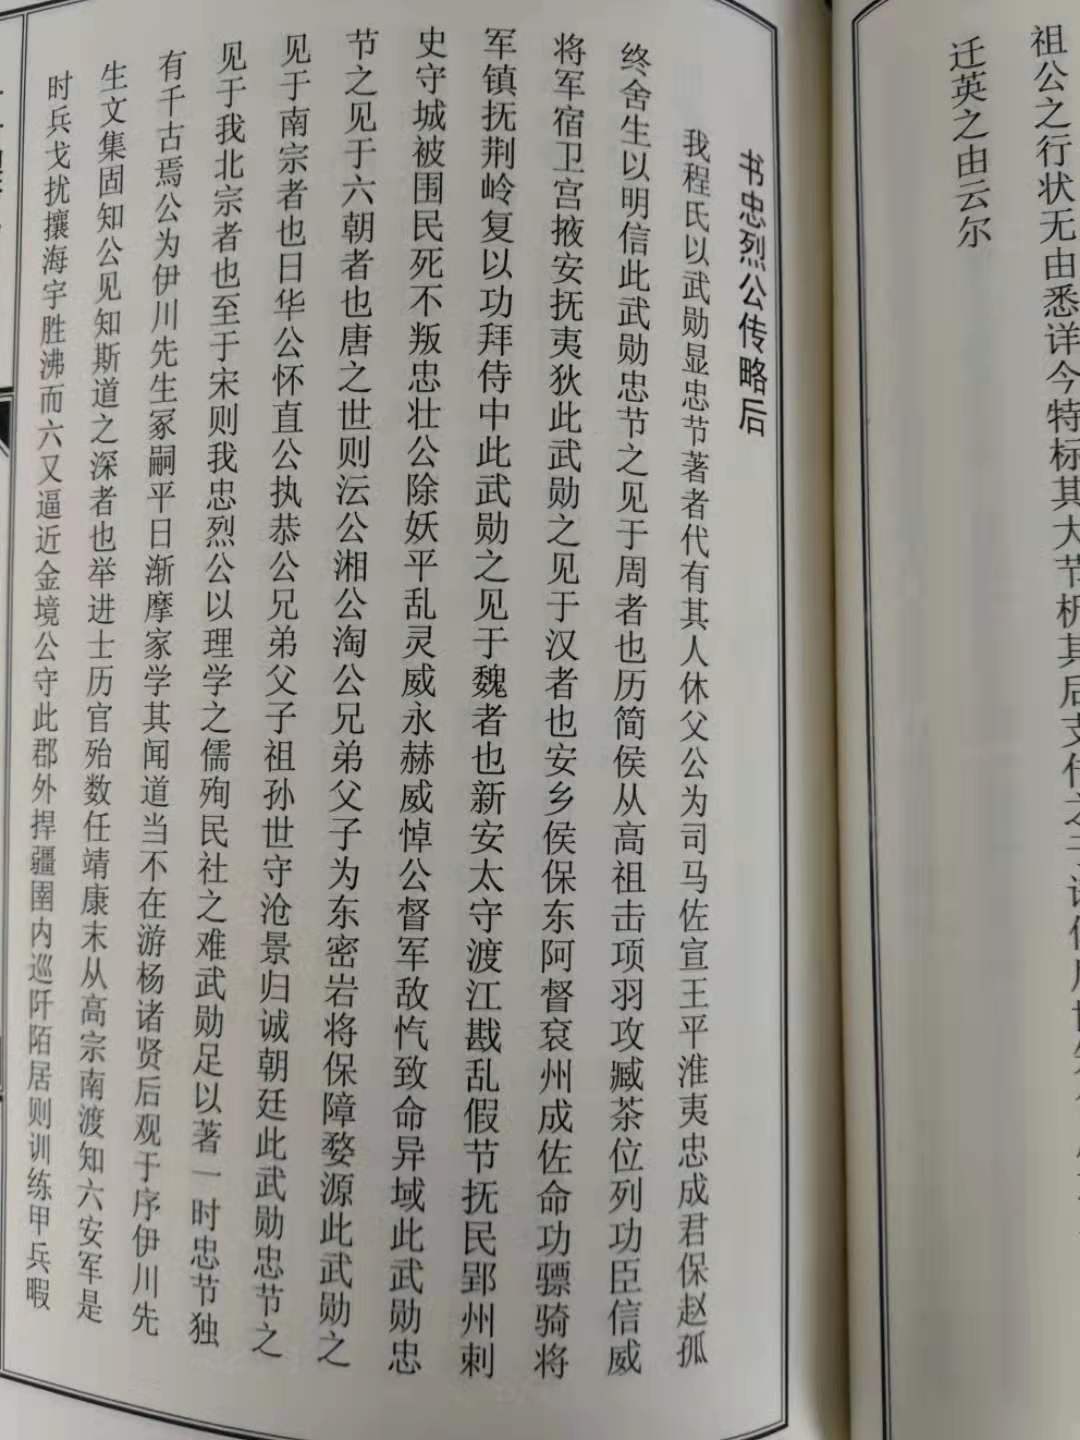 祖公之行状无由悉详今特标其大节析其后支
迁英之由云尔
书忠烈公传略后
我程氏以武勋显忠节著者代有其人休父公为司马佐宣王平淮夷忠成君保赵孤
终舍生以明信此武勋忠节之见于周者也历简侯从高祖击项羽攻臧荼位列功臣信威
将军宿卫宫掖安抚夷狄此武勋之见于汉者也安乡侯保东阿督兖州成佐命功骠骑将
军镇抚荆岭复以功拜侍中此武勋之见于魏者也新安太守渡江戡乱假节抚民郢州刺
史守城被围民死不叛忠壮公除妖平乱灵威永赫威悼公督军敌忾致命异域此武勋忠
节之见于六朝者也唐之世则沄公湘公淘公兄弟父子为东密岩将保障婺源此武勋之
见于南宗者也日华公怀直公执恭公兄弟父子祖孙世守沧景归诚朝廷此武勋忠节之
见于我北宗者也至于宋则我忠烈公以理学之儒殉民社之难武勋足以著一时忠节独
有千古焉公为伊川先生冢嗣平日渐摩家学其闻道当不在游杨诸贤后观于序伊川先
生文集固知公见知斯道之深者也举进士历官殆数任靖康末从高宗南渡知六安军是
时兵戈扰攘海宇胜沸而六又逼近金境公守此郡外捍疆圉内巡阡陌居则训练甲兵暇